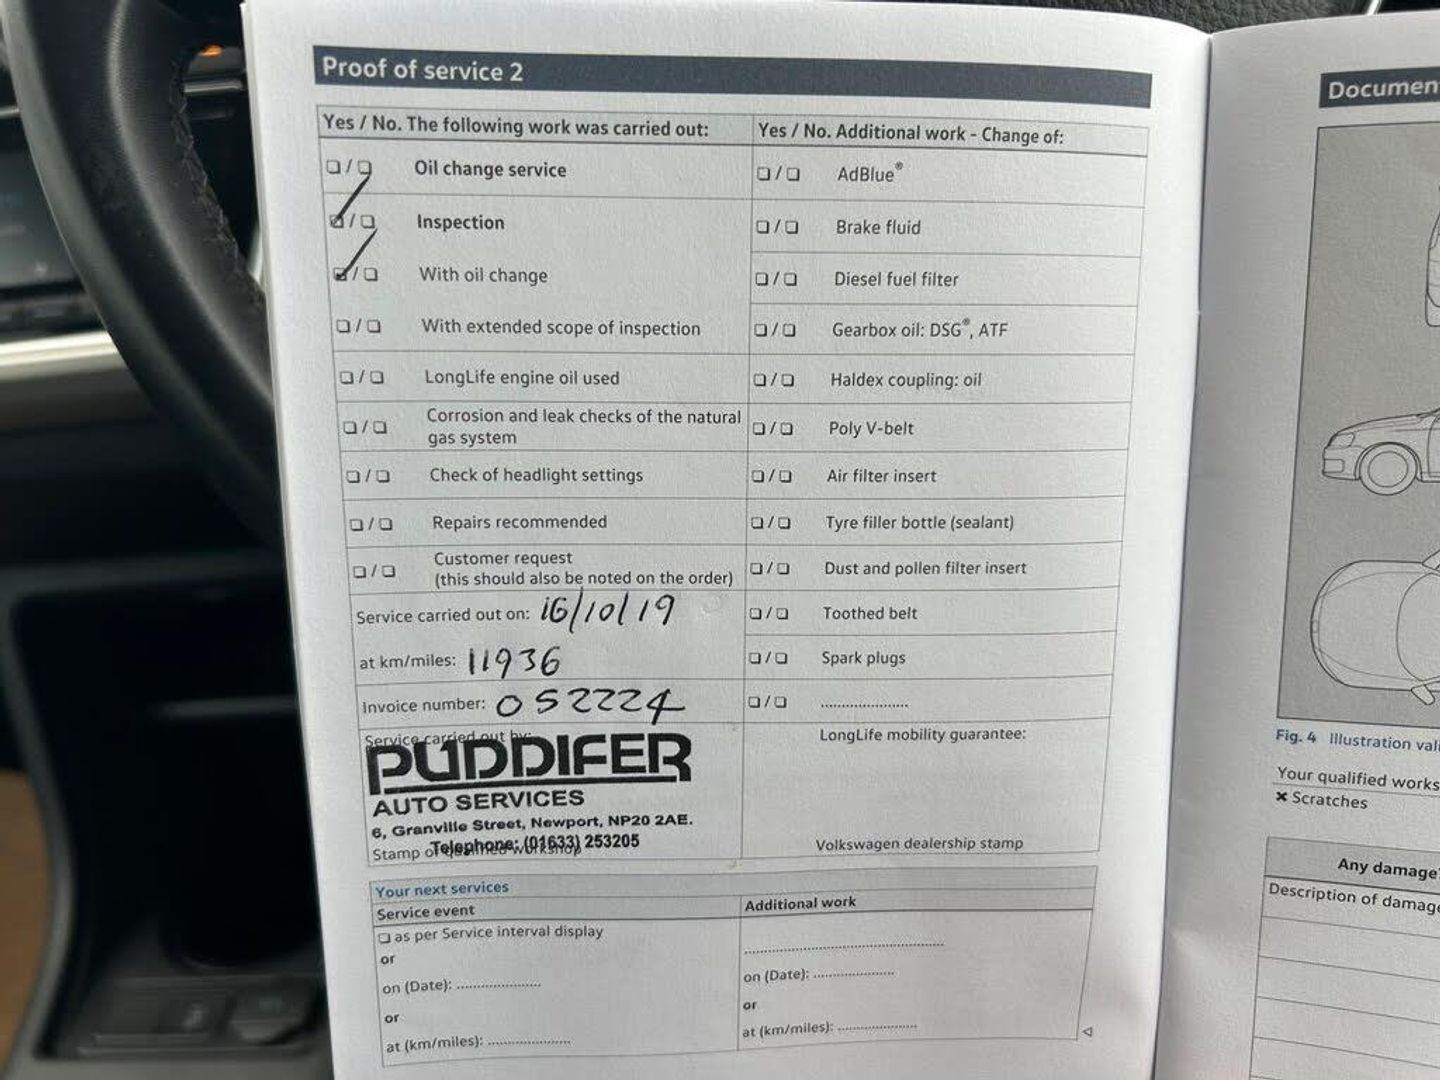 Proof of service 2
Yes / No. The following work was carried out:
❏ / ❏ Oil change service
☑ / ❏ Inspection
☑ / ❏ With oil change
❏ / ❏ With extended scope of inspection
❏ / ❏ LongLife engine oil used
❏ / ❏ Corrosion and leak checks of the natural
gas system
❏ / ❏ Check of headlight settings
❏ / ❏ Repairs recommended
❏ / ❏ Customer request
(this should also be noted on the order)
Service carried out on: 16/10/19
at km/miles: 11936
Invoice number: 052224
Service carried out by:
PUDDIFER
AUTO SERVICES
6, Granville Street, Newport, NP20 2AE.
Telephone: (01633) 253205
Stamp of qualified workshop
Yes / No. Additional work - Change of:
❏ / ❏ AdBlue®
❏ / ❏ Brake fluid
❏ / ❏ Diesel fuel filter
❏ / ❏ Gearbox oil: DSG®, ATF
❏ / ❏ Haldex coupling: oil
❏ / ❏ Poly V-belt
❏ / ❏ Air filter insert
❏ / ❏ Tyre filler bottle (sealant)
❏ / ❏ Dust and pollen filter insert
❏ / ❏ Toothed belt
❏ / ❏ Spark plugs
❏ / ❏ ......................
LongLife mobility guarantee:
Volkswagen dealership stamp
Your next services
Service event
❏ as per Service interval display
or
on (Date): .....................
or
at (km/miles): .....................
Additional work
..................................................
on (Date): .....................
or
at (km/miles): .....................
Documen
Fig. 4 Illustration vali
Your qualified works
✖ Scratches
Any damage?
Description of damage